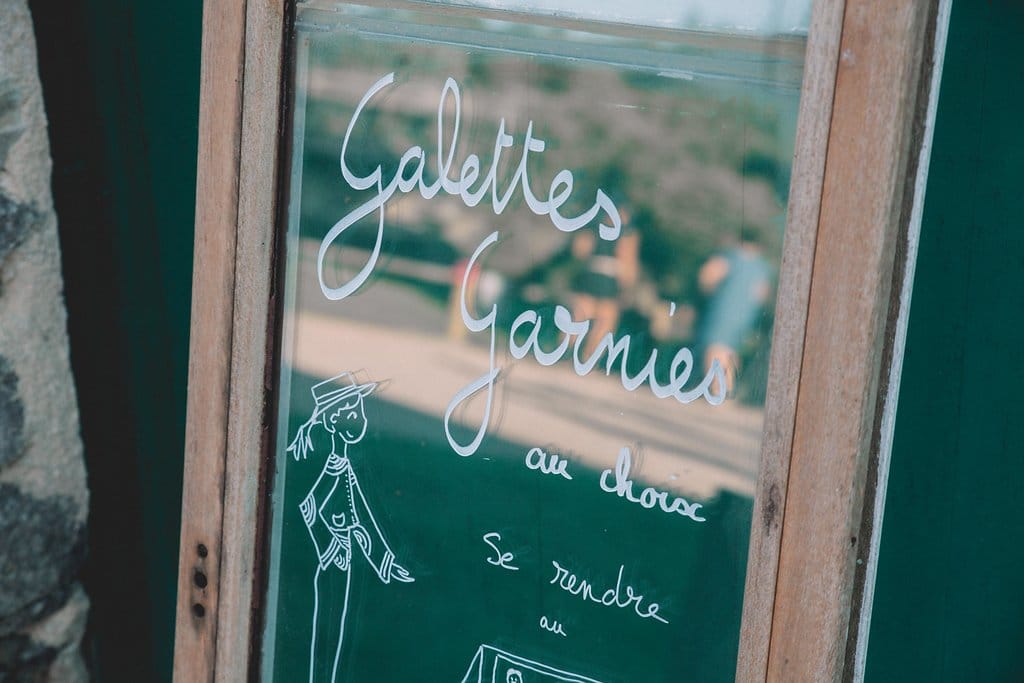 Galettes
Garnies
au choix
Se rendre
au